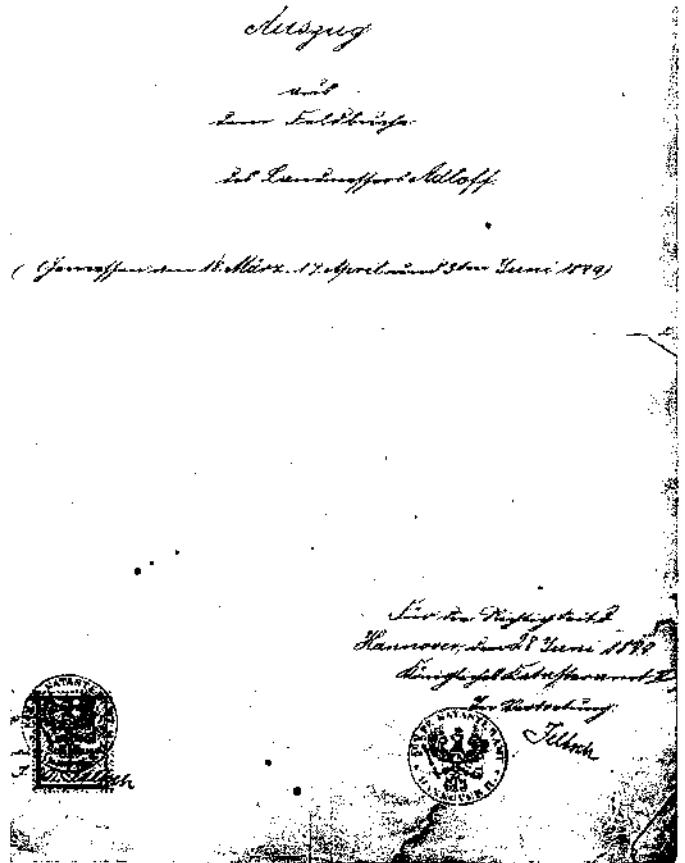 Auszug
aus
dem Feldbuche
des Landmessers Adloff.
(Gemessen am 18. März. 17. April und 3ten Juni 1899)
Für die Richtigkeit
Hannover, den 28 Juni 1899
Königliches Katasteramt II
In Vertretung
HANNOVER II.